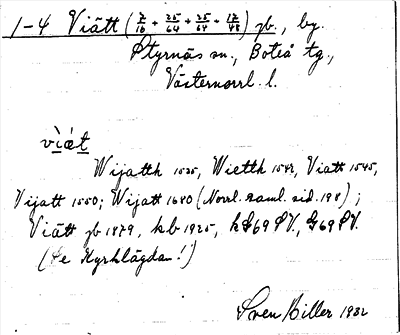 1-4 Viätt (7/16 + 25/64 + 25/64 + 17/48) jb., by.
Styrnäs sn., Boteå tg.,
Västernorrl. l.
vìǽt
Wijatth 1535, Wietth 1542, Viatt 1545,
Vijatt 1550; Wijatt 1680 (Norrl. saml. sid. 198);
Viätt jb 1879, kb 1925, kG69 SV., G69 SV.
(Se Kyrklägdan!)
Sven Biller 1932